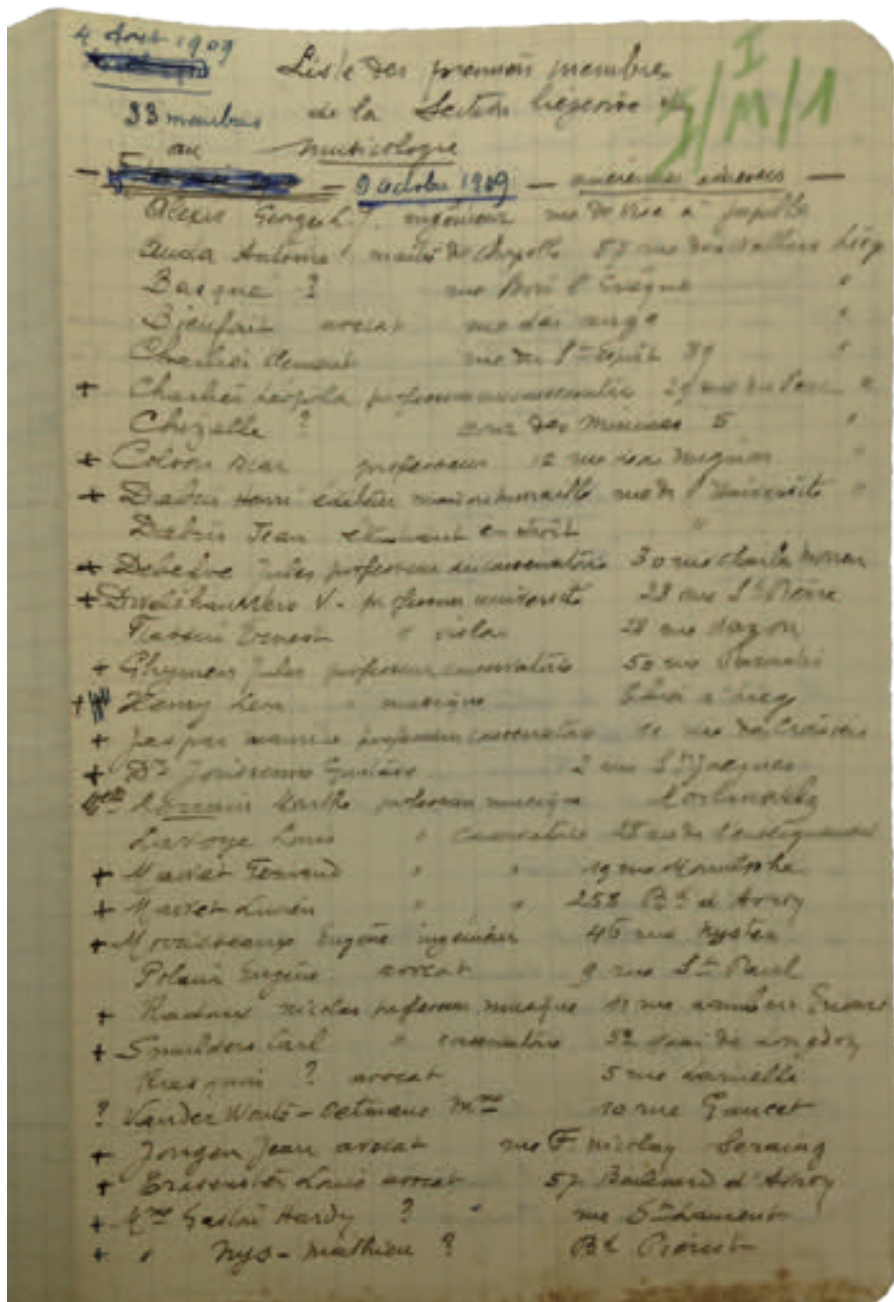 4 Aout 1909
Liste des premiers membres
I
/M/1
33 membres de la Section liégeoise de
au musicologie
— 9 octobre 1909 — anciennes adresses —
Alexis Georges L. J. ingénieur rue de Visé à Jupille
Auda Antoine maitre de chapelle 57 rue des Wallons Liég
Basque ? rue "
Bienfait avocat rue des anges "
Charlier Clement rue du St Esprit 89 "
+ Charlier Léopold professeur au conservatoire 29 rue du Parc "
Chezelle ? cour des Minimes 5 "
+ Colson Oscar professeur 12 rue Leon Mignon "
+ Dabin Henri rue de l'Université "
Dabin Jean étudiant en droit "
+ Debefve Jules professeur au conservatoire 30 rue Charles Morren
+ Dwelshauvers V. professeur université 28 rue St Pierre
Ernest " viola 28 rue
+ Ghymers Jules professeur conservatoire 50 rue Paradis
+ Henry Leon " musique
+ Jaspar Maurice professeur conservatoire 11 rue des Croisiers
+ Dr Jorissenne Gustave 2 rue St Jacques
Marthe professeur musique
Lavoye Louis " Conservatoire 28 rue de l'enseignement
+ Mawet Fernand " " 19 rue
+ Mawet Lucien " " 258 Bd d'Avroy
+ Eugène ingénieur 46 rue Nysten
Polain Eugène avocat 9 rue St Paul
+ Radoux Nicolas professeur musique 11 rue
+ Smulders Carl " conservatoire 52 quai de Longdoz
? avocat 5 rue Laruelle
? Vander Wouté-Oetmans Mme 10 rue Faucet
+ Jongen Jean avocat rue F. Nicolay Seraing
+ Louis avocat 57 Boulevard d'Avroy
+ Mme Gaston Hardy ? " rue St Laurent
+ " Nys-Mathieu ? Bd Piercot